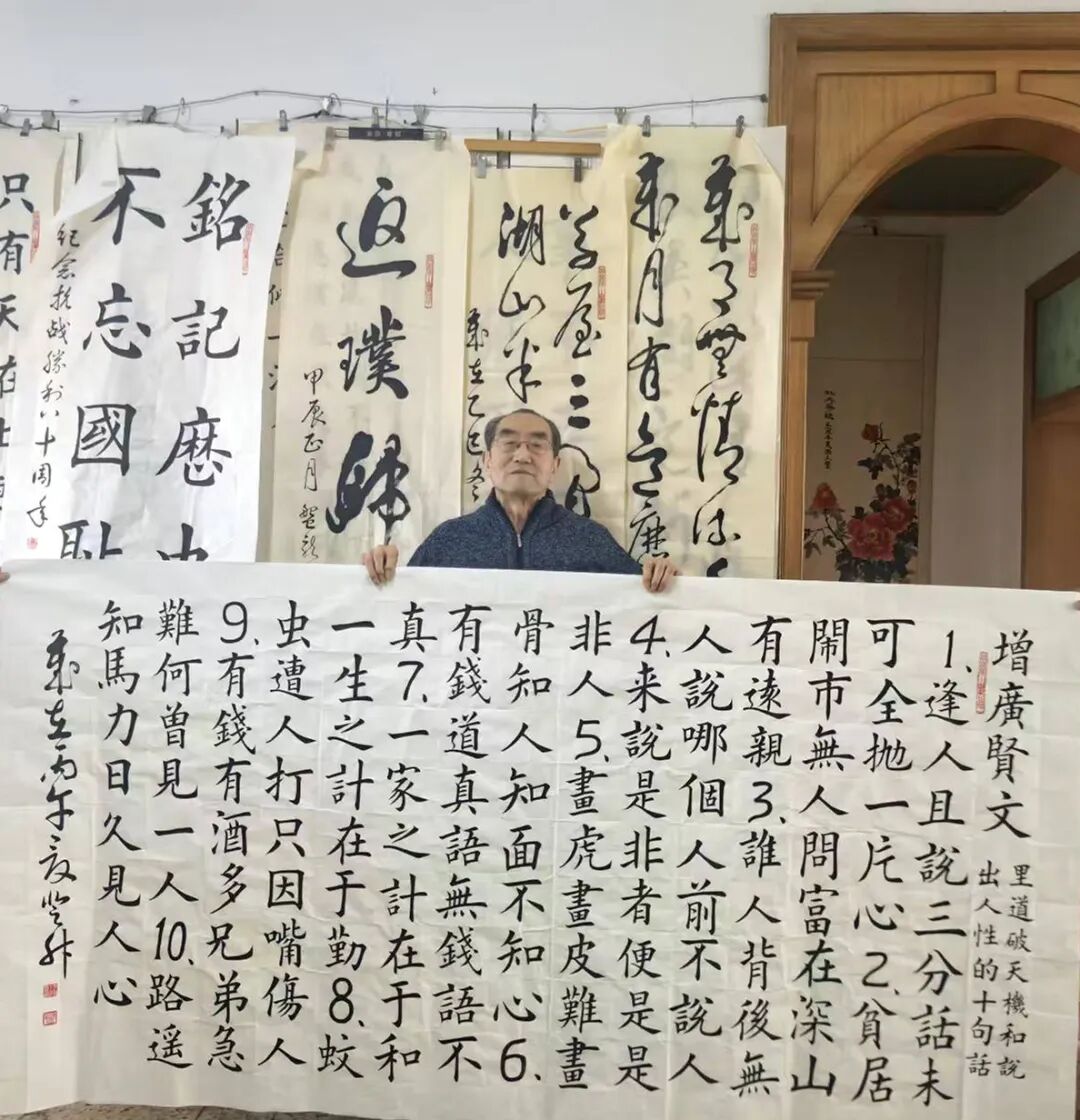 湖山半
歲在乙巳冬
返璞歸
甲辰正月
銘記歷史
不忘國耻
纪念抗战勝利八十周年
只有天在上
增廣賢文
里道破天機和説
出人性的十句話
1、逢人且說三分話未
可全抛一片心2、貧居
鬧市無人問富在深山
有遠親3、誰人背後無
人說哪個人前不說人
4、来說是非者便是是
非人5、畫虎畫皮難畫
骨知人知面不知心6、
有錢道真語無錢語不
真7、一家之計在于和
一生之計在于勤8、蚊
虫遭人打只因嘴傷人
9、有錢有酒多兄弟急
難何曾見一人10、路遥
知馬力日久見人心
歲在丙午